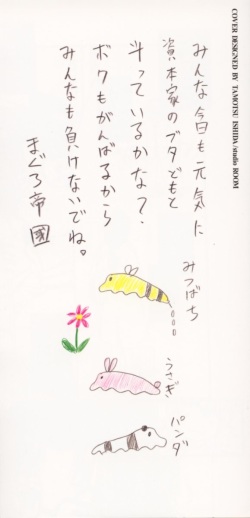 みんな今日も元気に
資本家のブタどもと
斗っているかな?.
ボクもがんばるから
みんなも負けないでね。
まぐろ帝國
みつばち
うさぎ
パンダ
COVER DESIGNED BY TAMOTSU ISHIDA/studio ROOM